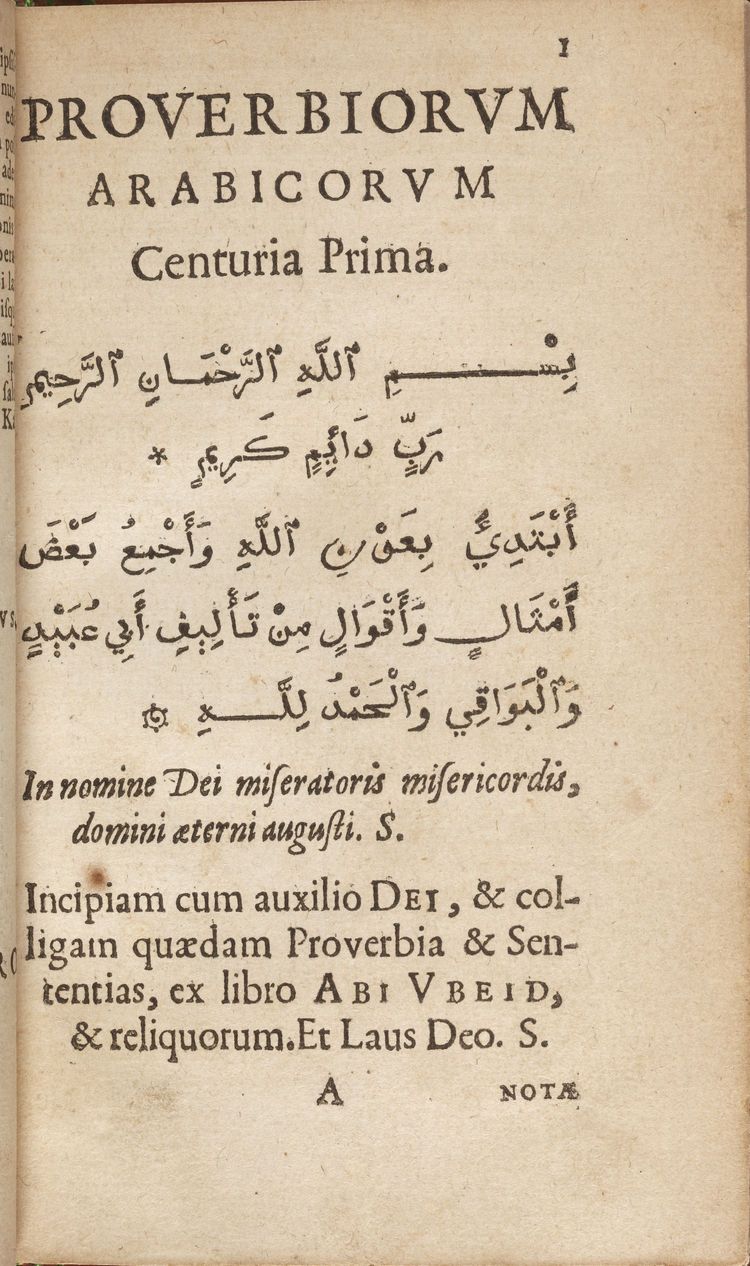 1
PROVERBIORVM
ARABICORVM
Centuria Prima.
بِسْــــمِ ٱللَّهِ ٱلرَّحْمَـانِ ٱلرَّحِيمِ
رَبٍّ دَائِمٍ كَرِيمٍ *
أَبْتَدِئُ بِعَوْنِ ٱللَّهِ وَأَجْمِعُ بَعْضَ
أَمْثَالٍ وَأَقْوَالٍ مِنْ تَأْلِيفِ أَبِي عُبَيْدٍ
وَٱلْبَوَاقِي وَٱلْحَمْدُ لِلَّـــهِ ۞
In nomine Dei miſeratoris miſericordis,
domini æterni auguſti. S.
Incipiam cum auxilio DEI, & col-
ligam quædam Proverbia & Sen-
tentias, ex libro ABI VBEID,
& reliquorum. Et Laus Deo. S.
A NOTÆ